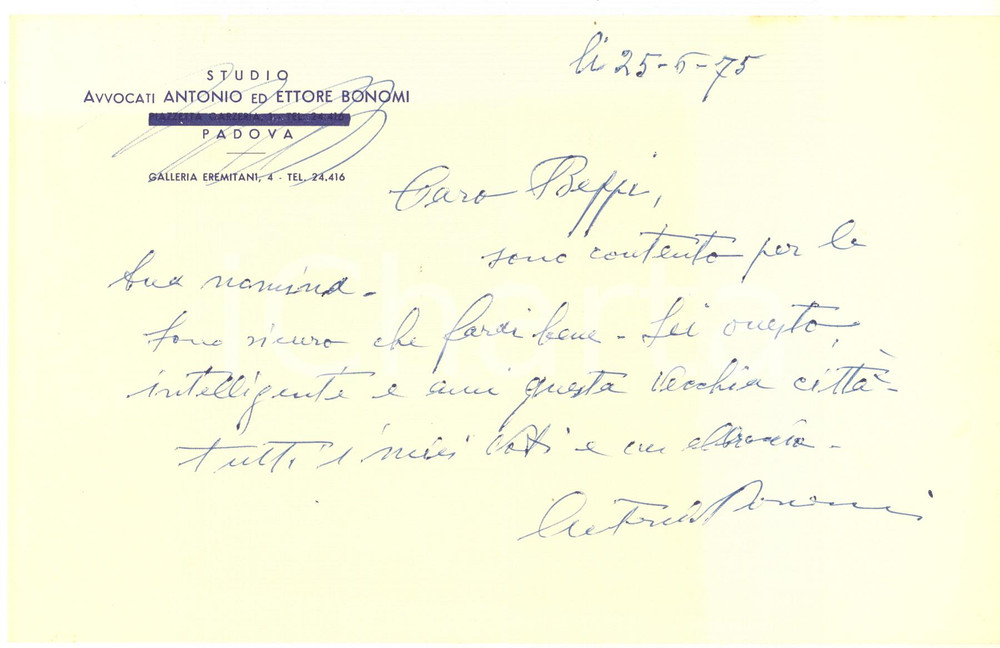 STUDIO
AVVOCATI ANTONIO ED ETTORE BONOMI
PIAZZETTA GARZERIA, 1 - TEL. 24.416
PADOVA
GALLERIA EREMITANI, 4 - TEL. 24.416
lì 25-6-75
Caro Beppi,
sono contento per la
tua nomina -
Sono sicuro che farai bene - Sei onesto,
intelligente e ami questa vecchia città -
tutti i miei voti e un abbraccio -
Antonio Bonomi
iCharta